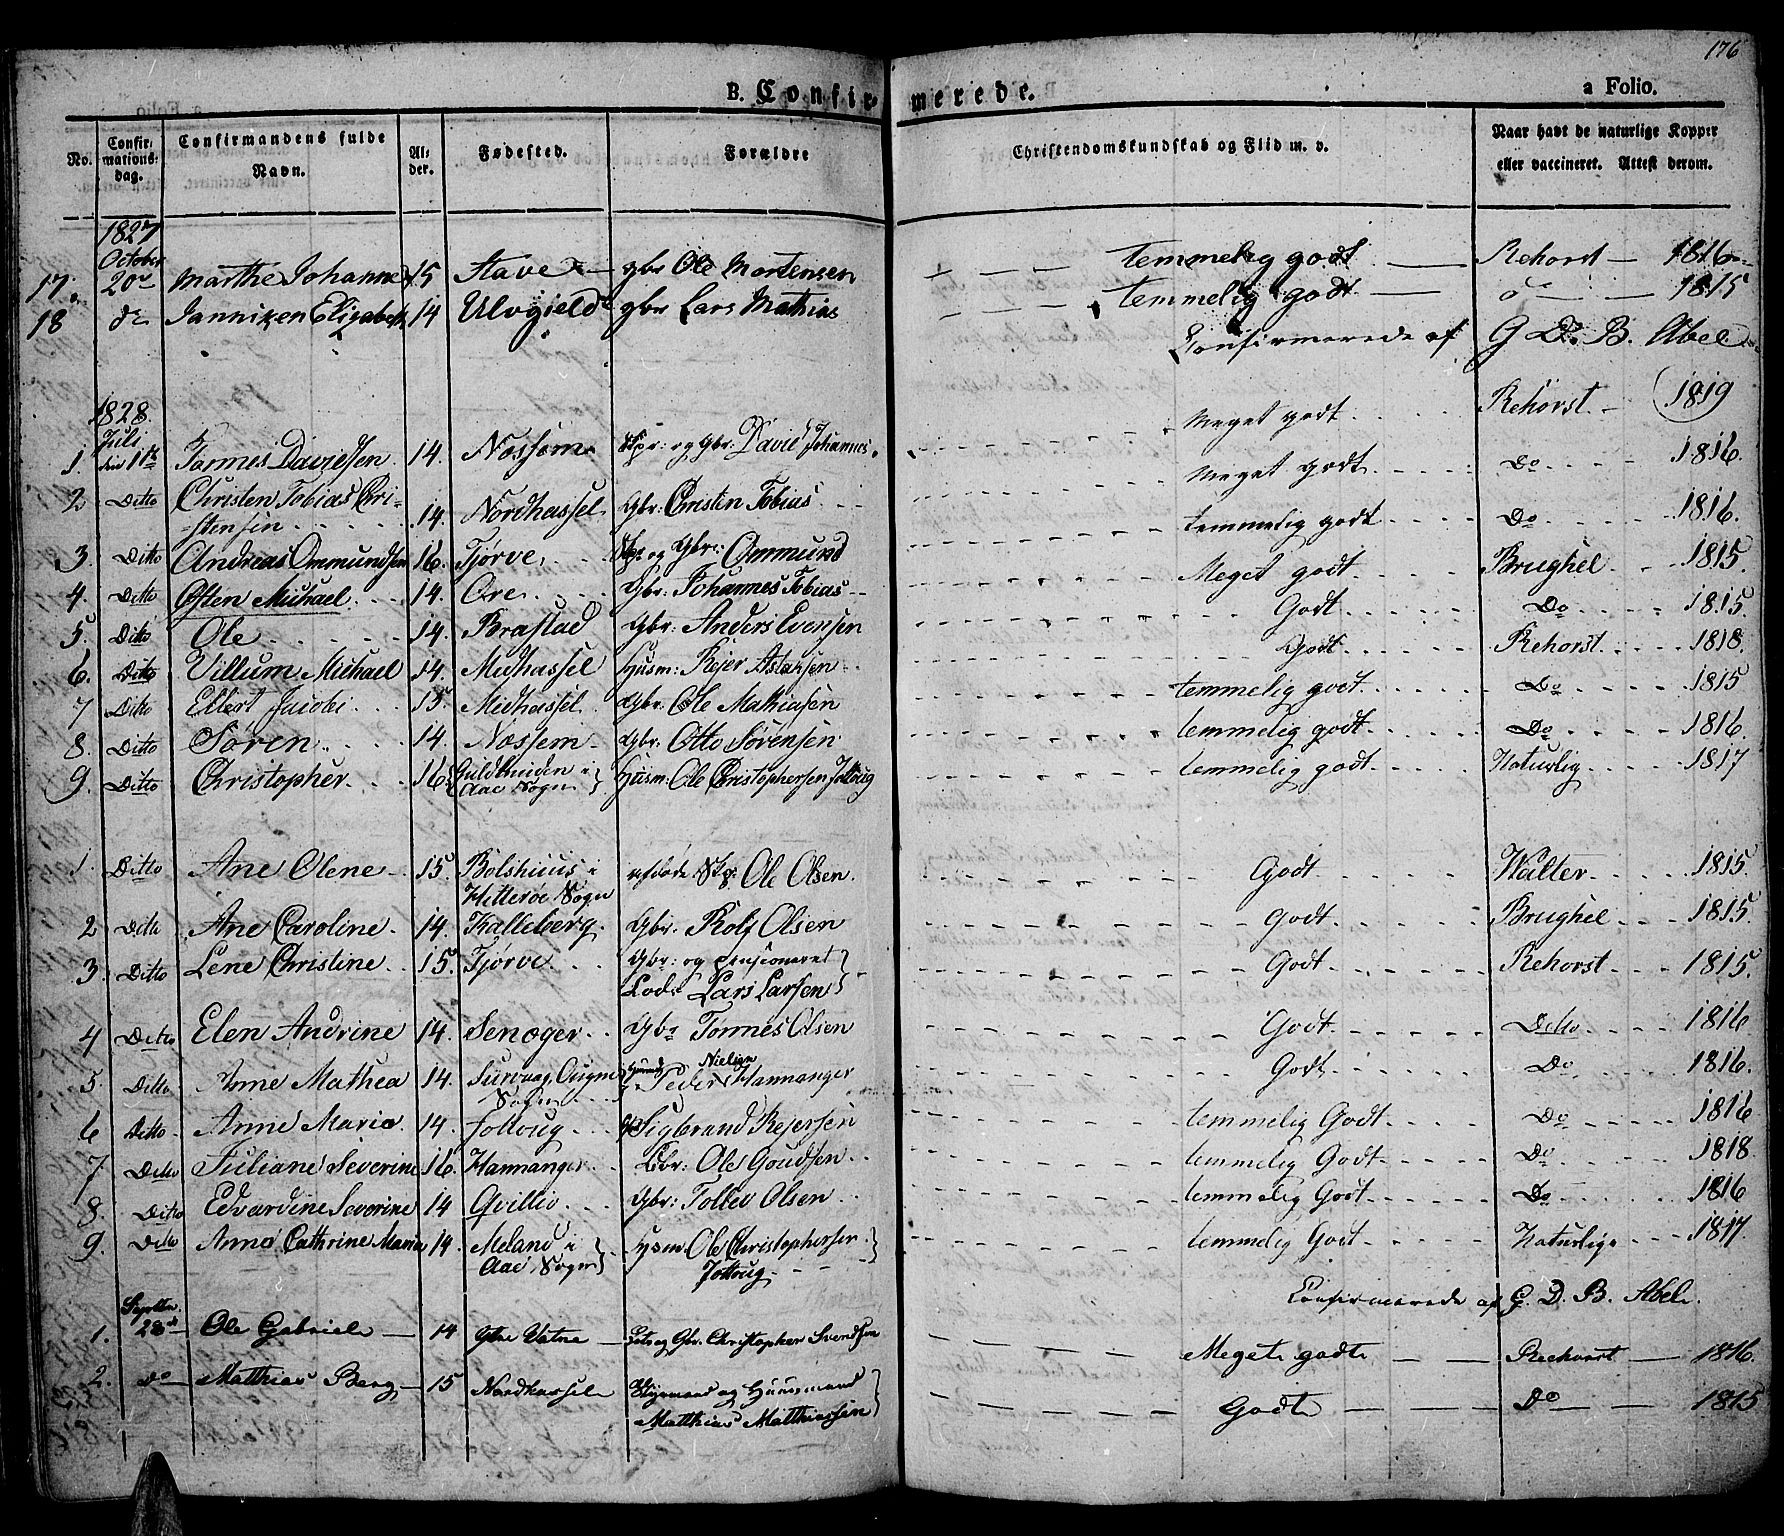 176
B. Confirmerede. a Folio.
No. Confirmationsdag. Confirmandens fulde Navn. Alder. Fødested. Forældre Christendomskundskab og Flid m. v. Naar havt de naturlige Kopper eller vaccineret. Attest derom.
1827
October
17. 20de Marthe Johanne 15 Stave gbr Ole Mortensen temmelig godt Rehorst 1816
18 do Janniken Elisabeth 14 Ulvgield gbr Lars Mathias temmelig godt do 1815
Confirmerede af G. D. B. Abel
1828
Juli
1 Tørmes Davidsen 14. Nossom Skpr: og gbr: David Johannes. Meget godt Rehorst 1819
2 Ditto Christen Tobias Cri-
stensen 14. Nordhassel Gbr: Christen Tobias Meget godt Do 1816.
3. Ditto Andreas Ommundsen 16. Tjørve Skpr og Gbr: Ommund temmelig godt Do 1816.
4. Ditto Osten Michael 14. Ore Gbr: Johannes Tobias Meget godt Brughel 1815.
5. Ditto Ole 14. Brastad Gbr: Anders Evensen Godt Do 1815.
6. Ditto Villum Michael 14. Midhassel Husm: Rejer Godt Rehorst 1818.
7 Ditto Ellert Jacobi 15. Midhassel Gbr. Ole Mathiasen temmelig godt Do 1815
8. Ditto Søren 14. Nossem Gbr: Otto Sørensen temmelig godt Do 1816.
9. Ditto Christopher 16. i
Aae Sogn Husm: Ole Christophersen Jolloug temmelig godt Naturlig 1817
1. Ditto Ane Olene 15. Bolshuus i
Hitterøe Sogn afdøde Skp: Ole Olsen Godt Walter 1815.
2 Ditto Ane Caroline 14. Kalleberg Gbr: Rolf Olsen Godt Brughel 1815.
3. Ditto Lene Christine 15. Tjørve Gbr: og pensioneret
Lods Lars Larsen Godt Rehorst 1815.
4 Ditto Elen Andrine 14. Senoger Gbr Tørmes Olsen Godt Ditto 1816
5. Ditto Anne Mathea 14. Ougne
Sogn Peder Nielsen Hannanger Godt Do 1816.
6 Ditto Anne Maria 14. Jolloug Sigbrand Rejersen temmelig Godt Do 1816
7 Ditto Juliane Severine 16. Hannanger Gbr: Ole Goudsen temmelig Godt Do 1818
8. Ditto Edvardine Severine 14 Qvilliv Gbr: Tollev Olsen temmelig Godt Do 1816
9. Ditto Anne Cathrine Maria 14. Meland i
Aae Sogn Husm Ole Christophersen
Jolloug temmelig Godt Naturlige 1817.
Confirmerede af G. D. B. Abel.
Septbr.
1. 28de Ole Gabriel 14 Vatne Lots og Gbr. Christopher Svendsen Meget godt Rechorst 1816.
2. Do Matthias Berg 15 Nordhassel Styrmand og Huusmand
Matthias Matthiassen Godt Do 1815